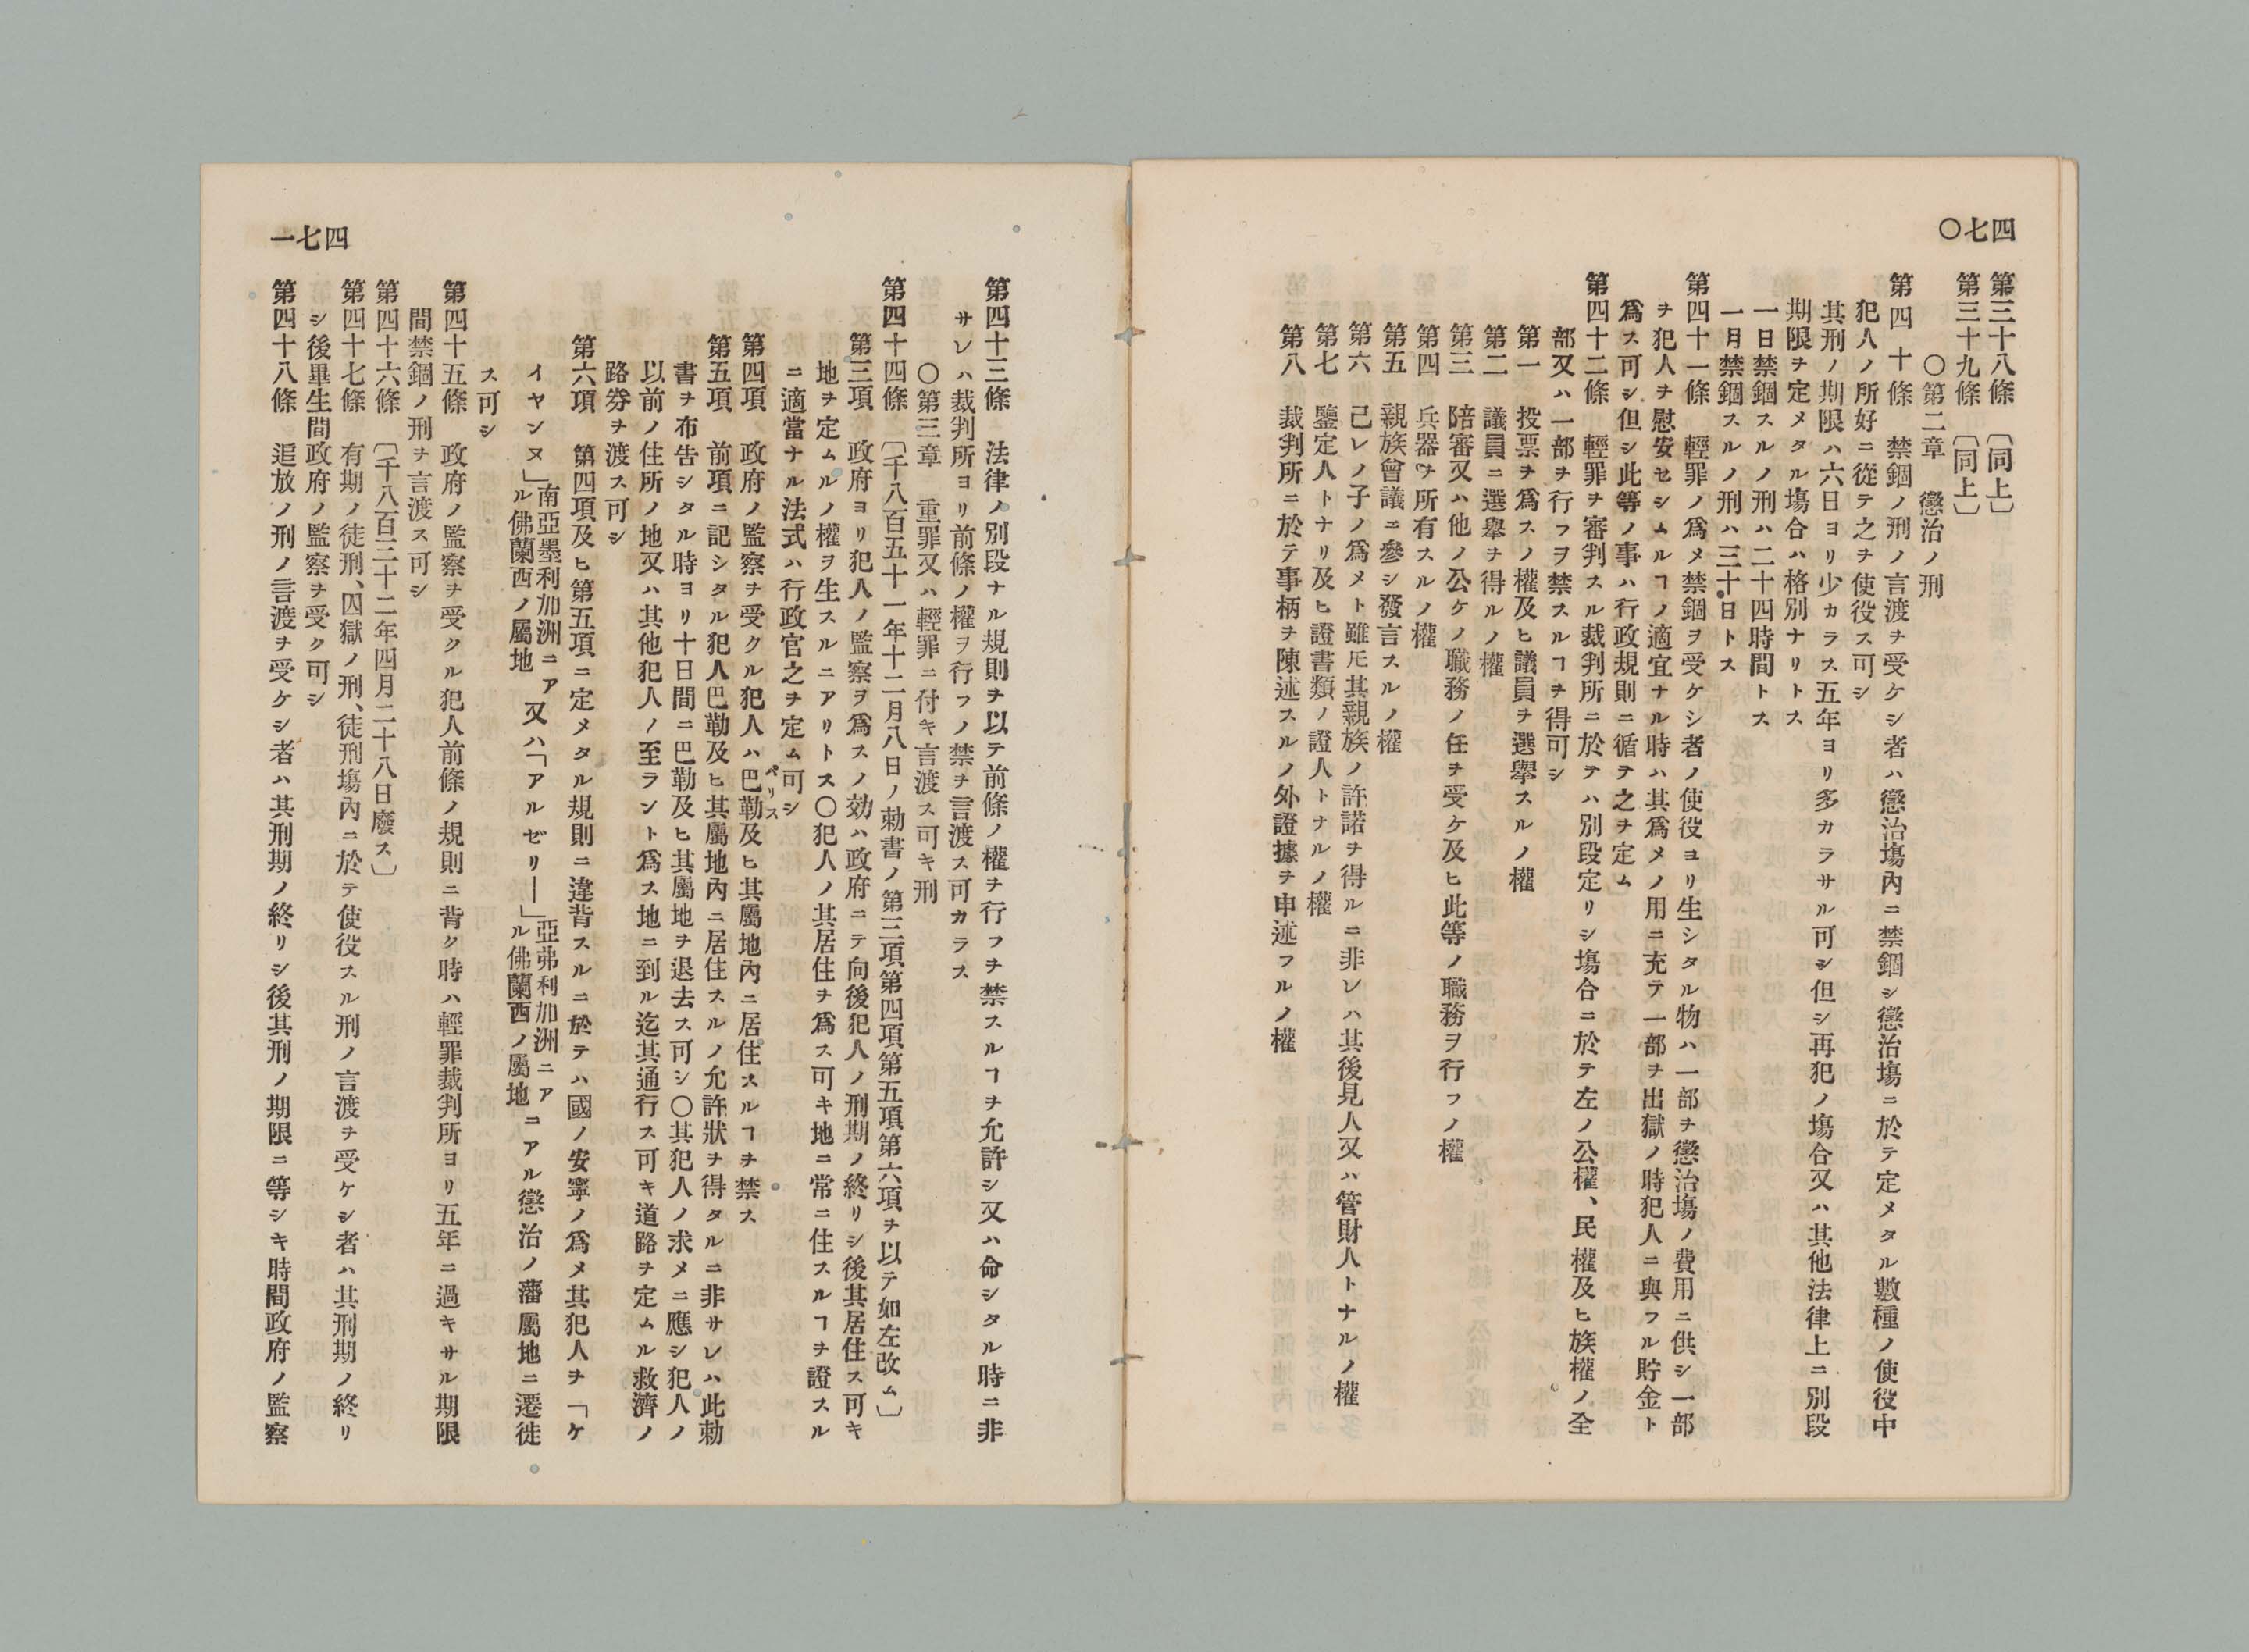 四七〇
第三十八條 〔同上〕
第三十九條 〔同上〕
〇第二章 懲治ノ刑
第四十條 禁錮ノ刑ノ言渡ヲ受ケシ者ハ懲治塲內ニ禁錮シ懲治塲ニ於テ定メタル數種ノ使役中
犯人ノ所好ニ從テ之ヲ使役ス可シ
其刑ノ期限ハ六日ヨリ少カラス五年ヨリ多カラサル可シ但シ再犯ノ塲合又ハ其他法律上ニ別段
期限ヲ定メタル塲合ハ格別ナリトス
一日禁錮スルノ刑ハ二十四時間トス
一月禁錮スルノ刑ハ三十日トス
第四十一條 輕罪ノ爲メ禁錮ヲ受ケシ者ノ使役ヨリ生シタル物ハ一部ヲ懲治塲ノ費用ニ供シ一部
ヲ犯人ヲ慰安セシムルヿノ適宜ナル時ハ其爲メノ用ニ充テ一部ヲ出獄ノ時犯人ニ與フル貯金ト
爲ス可シ但シ此等ノ事ハ行政規則ニ循テ之ヲ定ム
第四十二條 輕罪ヲ審判スル裁判所ニ於テハ別段定リシ塲合ニ於テ左ノ公權、民權及ヒ族權ノ全
部又ハ一部ヲ行フヲ禁スルヿヲ得可シ
第一 投票ヲ爲スノ權及ヒ議員ヲ選擧スルノ權
第二 議員ニ選擧ヲ得ルノ權
第三 陪審又ハ他ノ公ケノ職務ノ任ヲ受ケ及ヒ此等ノ職務ヲ行フノ權
第四 兵器ヲ所有スルノ權
第五 親族會議ニ參シ發言スルノ權
第六 己レノ子ノ爲メト雖𪜈其親族ノ許諾ヲ得ルニ非レハ其後見人又ハ管財人トナルノ權
第七 鑒定人トナリ及ヒ證書類ノ證人トナルノ權
第八 裁判所ニ於テ事柄ヲ陳述スルノ外證據ヲ申述フルノ權
四七一
第四十三條 法律ノ別段ナル規則ヲ以テ前條ノ權ヲ行フヲ禁スルヿヲ允許シ又ハ命シタル時ニ非
サレハ裁判所ヨリ前條ノ權ヲ行フノ禁ヲ言渡ス可カラス
〇第三章 重罪又ハ輕罪ニ付キ言渡ス可キ刑
第四十四條 〔千八百五十一年十二月八日ノ勅書ノ第三項第四項第五項第六項ヲ以テ如左改ム〕
第三項 政府ヨリ犯人ノ監察ヲ爲スノ効ハ政府ニテ向後犯人ノ刑期ノ終リシ後其居住ス可キ
地ヲ定ムルノ權ヲ生スルニアリトス〇犯人ノ其居住ヲ爲ス可キ地ニ常ニ住スルヿヲ證スル
ニ適當ナル法式ハ行政官之ヲ定ム可シ
第四項 政府ノ監察ヲ受クル犯人ハ巴勒及ヒ其屬地內ニ居住スルヿヲ禁ス
パリス
第五項 前項ニ記シタル犯人巴勒及ヒ其屬地內ニ居住スルノ允許狀ヲ得タルニ非サレハ此勅
書ヲ布吿シタル時ヨリ十日間ニ巴勒及ヒ其屬地ヲ退去ス可シ〇其犯人ノ求メニ應シ犯人ノ
以前ノ住所ノ地又ハ其他犯人ノ至ラント爲ス地ニ到ル迄其通行ス可キ道路ヲ定ムル救濟ノ
路券ヲ渡ス可シ
第六項 第四項及ヒ第五項ニ定メタル規則ニ違背スルニ於テハ國ノ安寧ノ爲メ其犯人ヲ「ケ
イヤンヌ」南亞墨利加洲ニアル佛蘭西ノ屬地又ハ「アルゼリー」亞弗利加洲ニアル佛蘭西ノ屬地ニアル懲治ノ藩屬地ニ遷徙
ス可シ
第四十五條 政府ノ監察ヲ受クル犯人前條ノ規則ニ背ク時ハ輕罪裁判所ヨリ五年ニ過キサル期限
間禁錮ノ刑ヲ言渡ス可シ
第四十六條 〔千八百三十二年四月二十八日廢ス〕
第四十七條 有期ノ徒刑、囚獄ノ刑、徒刑塲內ニ於テ使役スル刑ノ言渡ヲ受ケシ者ハ其刑期ノ終リ
シ後畢生間政府ノ監察ヲ受ク可シ
第四十八條 追放ノ刑ノ言渡ヲ受ケシ者ハ其刑期ノ終リシ後其刑ノ期限ニ等シキ時間政府ノ監察